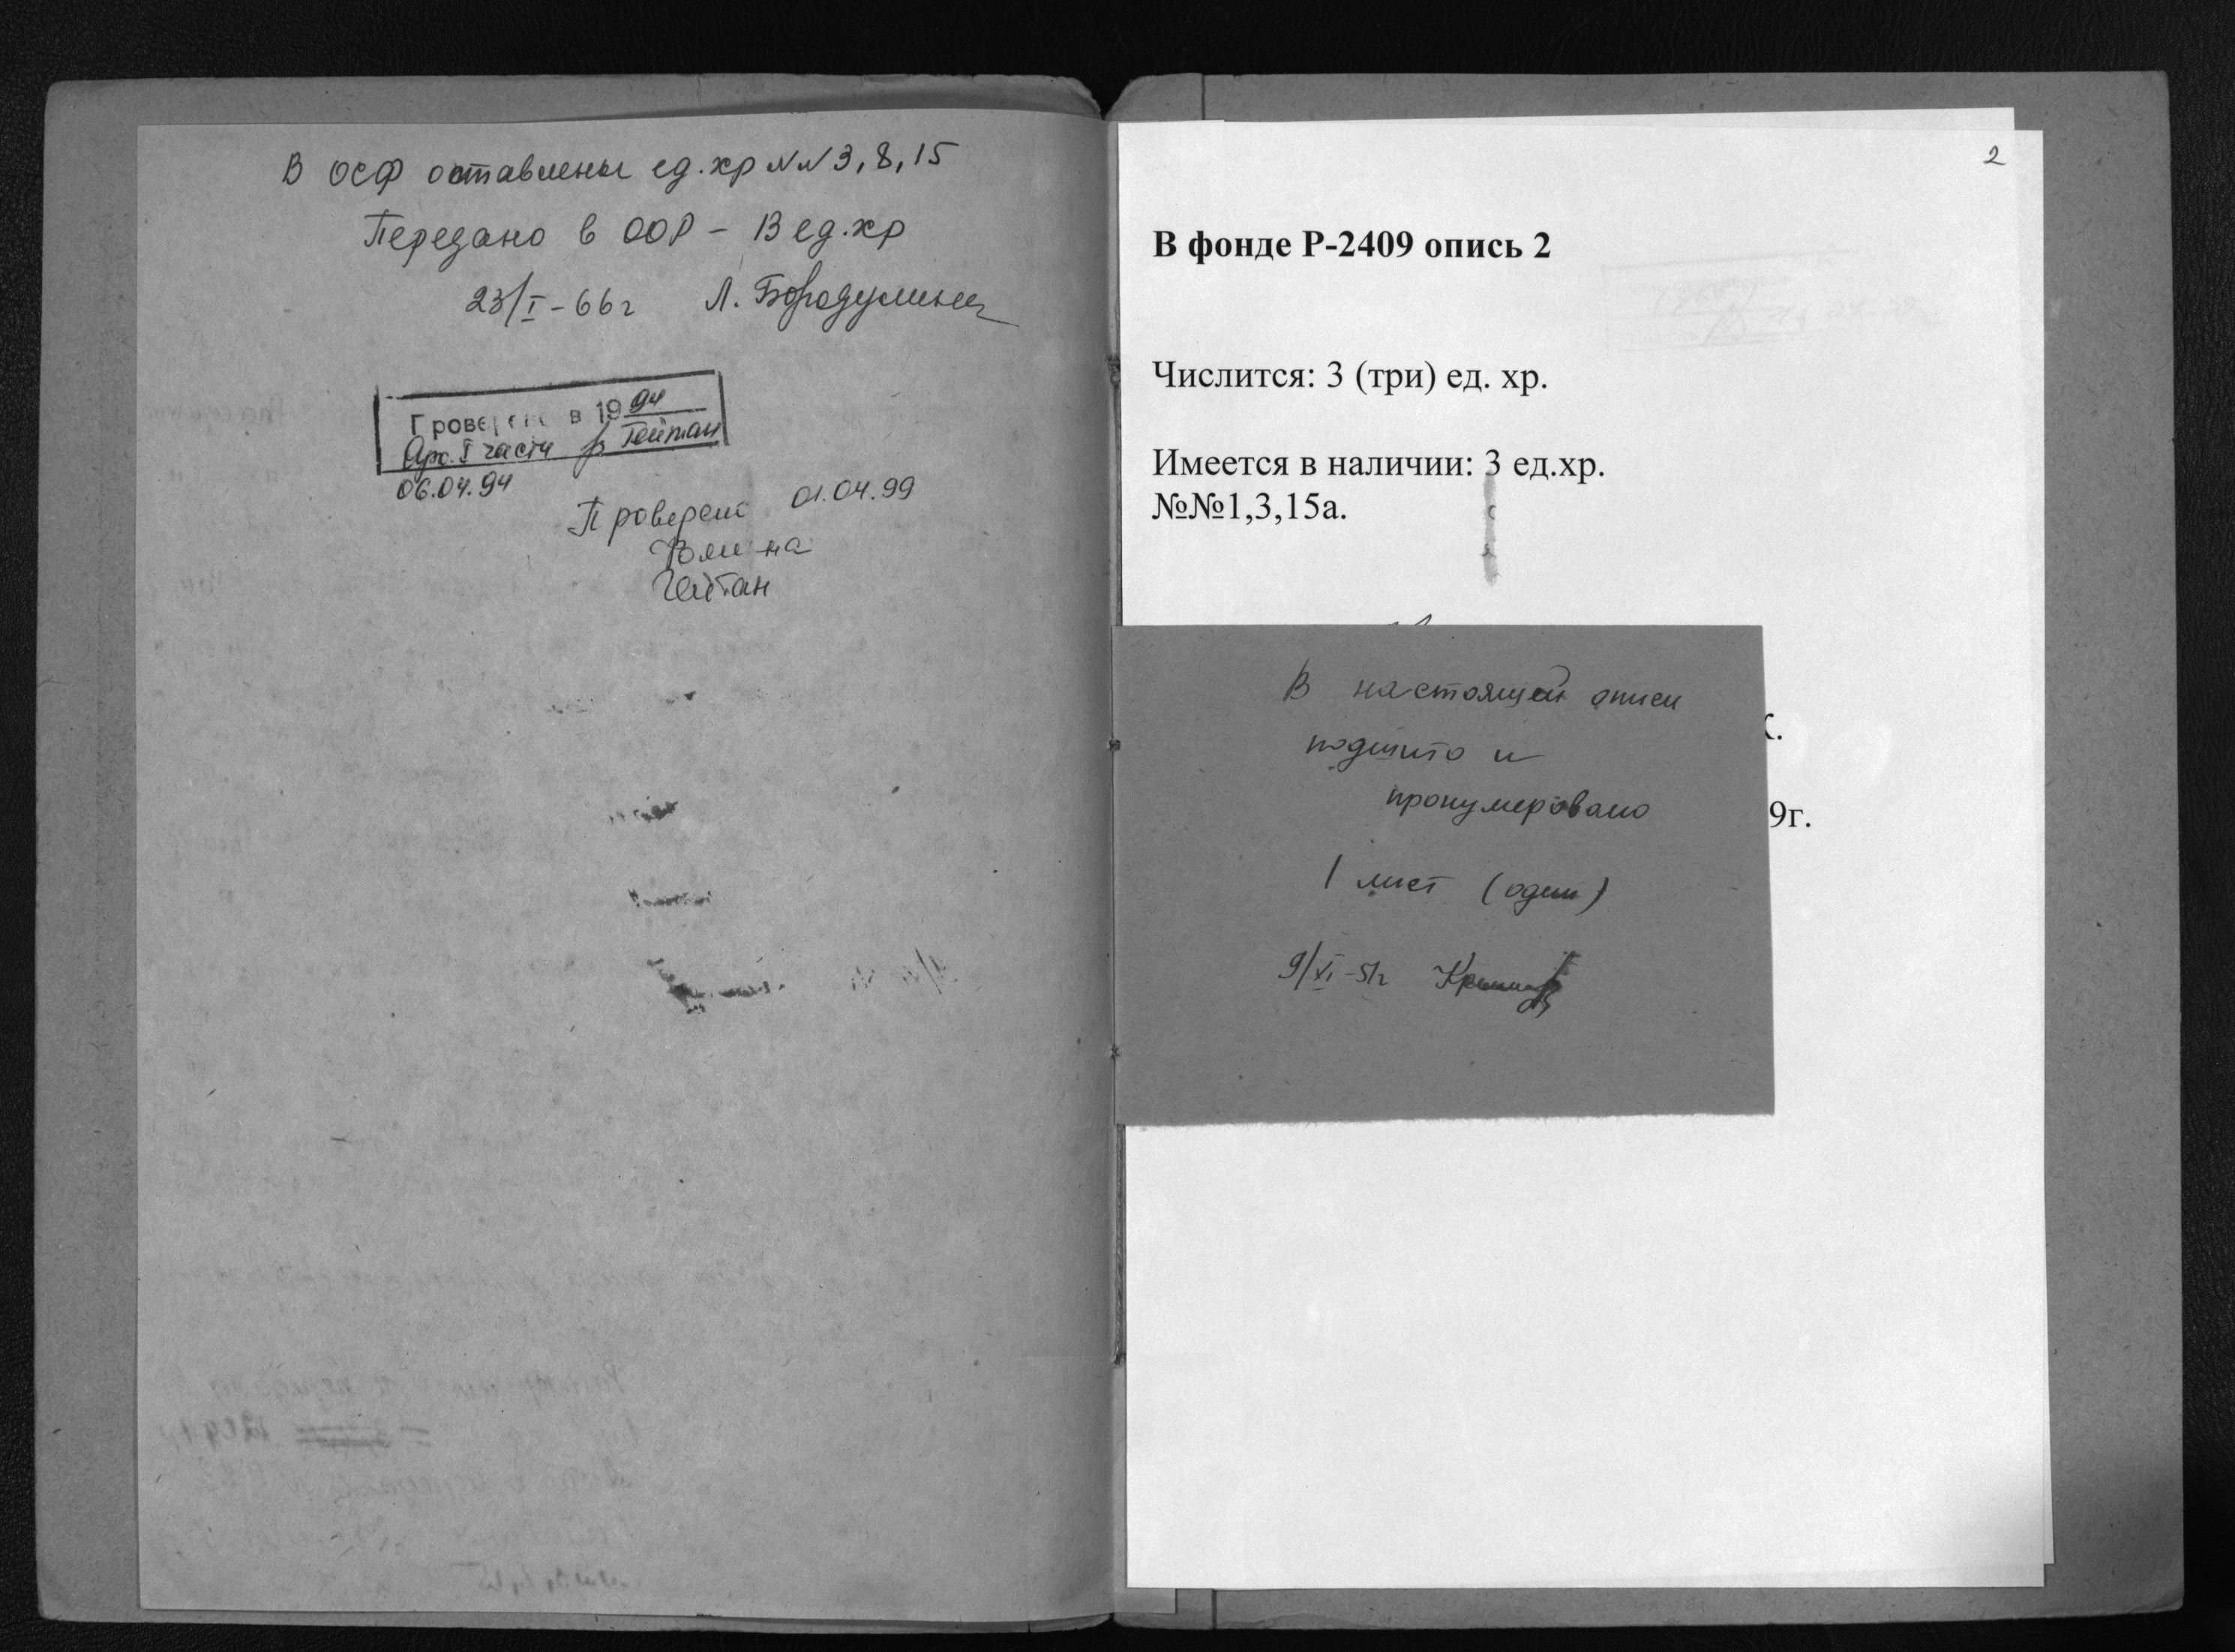 В ОСФ оставлены ед.хр №№ 3, 8, 15
Передано в ООР – 13 ед.хр
23/I-66г Л. Бородулина
Проверено в 1994
Арх. I части Гейтан
06.04.94
Проверено 01.04.99
Гейтан
2
В фонде Р-2409 опись 2
Числится: 3 (три) ед. хр.
Имеется в наличии: 3 ед.хр.
№№1,3,15а.
В настоящей описи
подшито и
пронумеровано
1 лист (один)
9/XI-51г
9г.